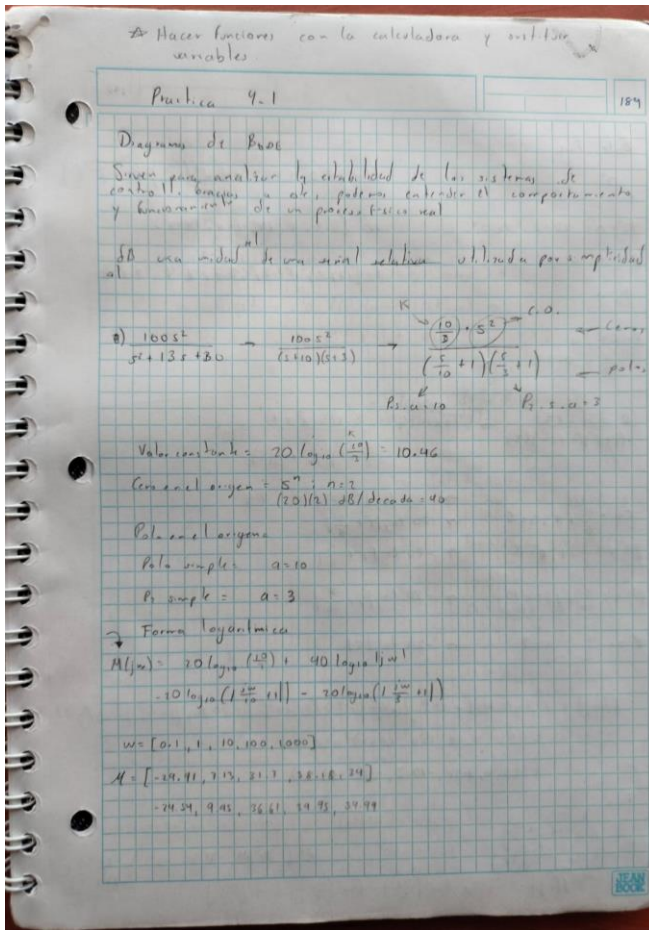 ☆ Hacer funciones con la calculadora y sustituir
variables.
Practica 4.1
184
Diagramas de Bode
Sirven para analizar la estabilidad de los sistemas de
control. Gracias a ele, podemos entender el comportamiento
y funcionamiento de un proceso físico real
dB una unidad de una señal relativa utilizada para amplitud
al
a) 100s² / s²+13s+30 → 100s² / (s+10)(s+3) → (10/3) · s² / (s/10 + 1)(s/3 + 1)
K
C.O.
← Ceros
← polos
P.s. a=10
P.s. a=3
Valor constante = 20 log₁₀ (10/3) = 10.46
K
Cero en el origen = sⁿ ; n=2
(20)(2) dB/decada = 40
Polo en el origen =
Polo simple = a=10
P. simple = a=3
Forma logarítmica
M(jw) = 20 log₁₀ (10/3) + 40 log₁₀ |jw|
-20 log₁₀ (|jw/10 +1|) - 20 log₁₀ (|jw/3 +1|)
w = [0.1, 1, 10, 100, 1000]
JEAN
BOOK